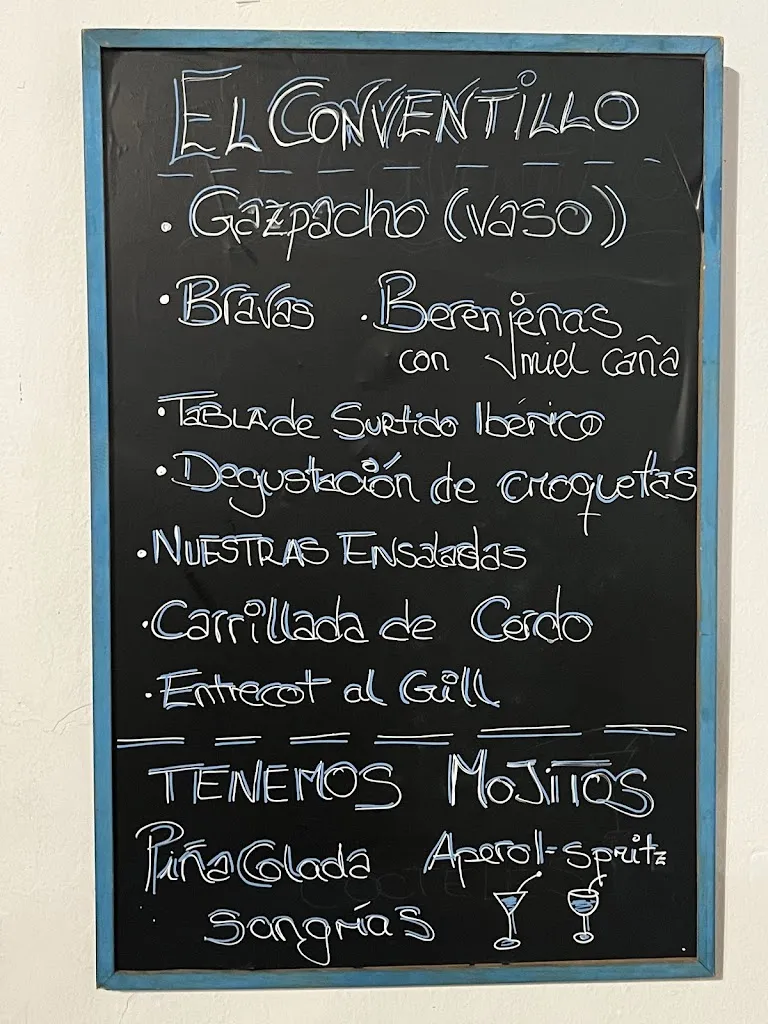 EL CONVENTILLO
• Gazpacho (vaso)
• Bravas • Berenjenas
con miel caña
• TABLA de Surtido Ibérico
• Degustación de croquetas
• NUESTRAS Ensaladas
• Carrillada de Cerdo
• Entrecot al Gill
TENEMOS MOJITOS
Piña Colada Aperol-Spritz
Sangrías